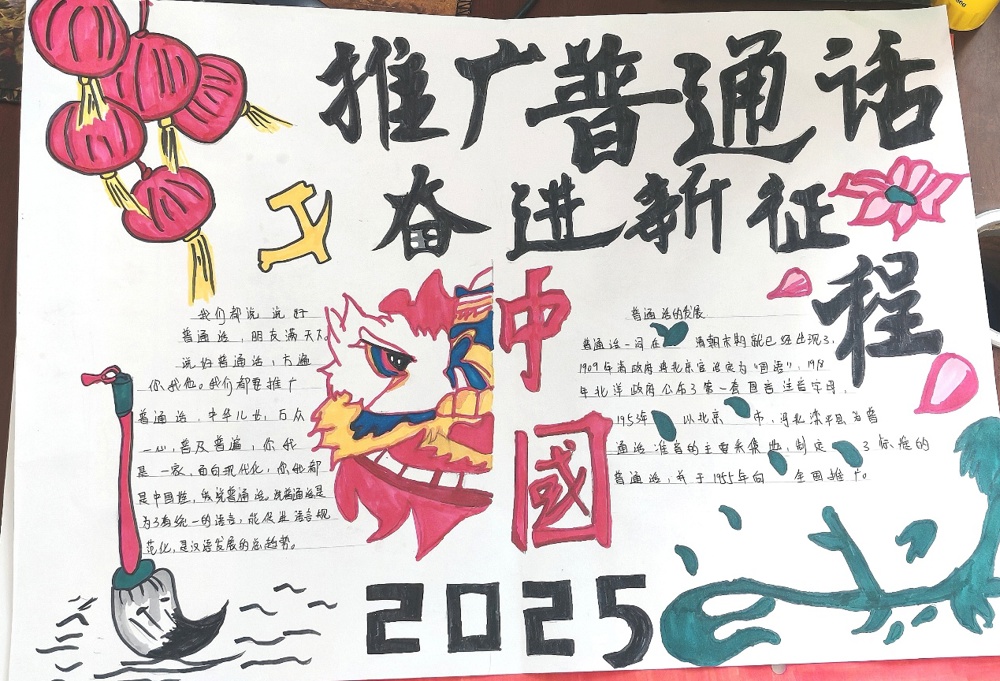 推广普通话
奋进新征程
中国
我们都说说好
普通话,朋友满天下。
说好普通话,方遍
你我他。我们都要推广
普通话,中华儿女,万众
一心,普及普遍,你我
是一家,面向现代化,你我都
是中国娃,我说普通话。说普通话是
为了有统一的语言,能促进语言规
范化,是汉语发展的总趋势。
普通话的发展
普通话一词在 清朝末期就已经出现了,
1909年清政府将北京官话定为“国语”,1918
年北洋政府公布了第一套国音注音字母,
1953年 以北京 市,河北滦平县为普
通话准音的主要采集地,制定 了标准的
普通话,并于1955年向 全国推广。
2025